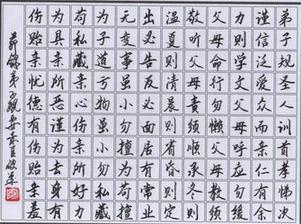 弟子规圣人训首孝悌次
谨信泛爱众而亲仁有余
力则学文父母呼应勿缓
父母命行勿懒父母教须
敬听父母责须顺承冬则
温夏则凊晨则省昏则定
出必告反必面居有常业
无变事虽小勿擅为苟擅
为子道亏物虽小勿私藏
苟私藏亲心伤亲所好力
为具亲所恶谨为去身有
伤贻亲忧德有伤贻亲羞
节录弟子规